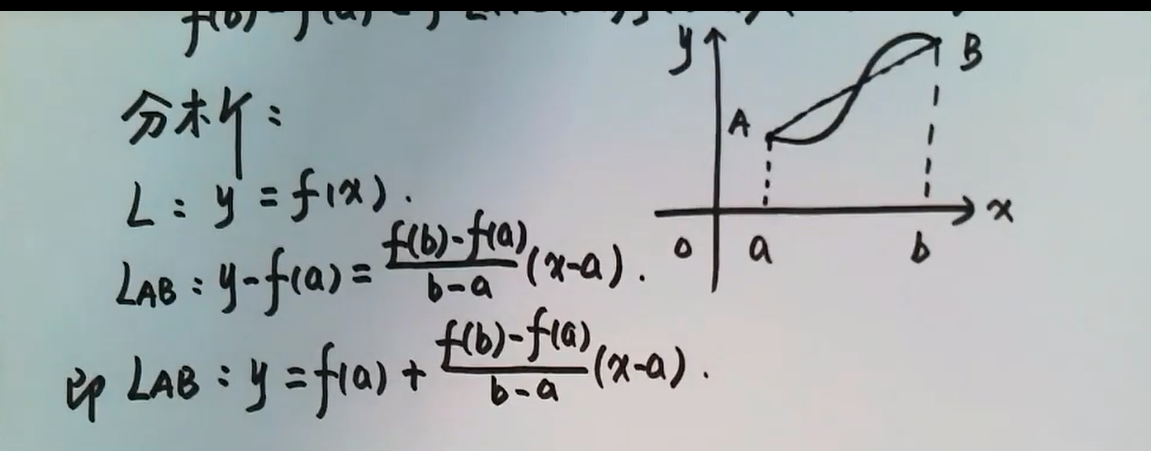 分析:
L: y = f(x).
L_AB: y-f(a) = \frac{f(b)-f(a)}{b-a}(x-a).
即 L_AB: y = f(a) + \frac{f(b)-f(a)}{b-a}(x-a).
y
A
B
x
0
a
b